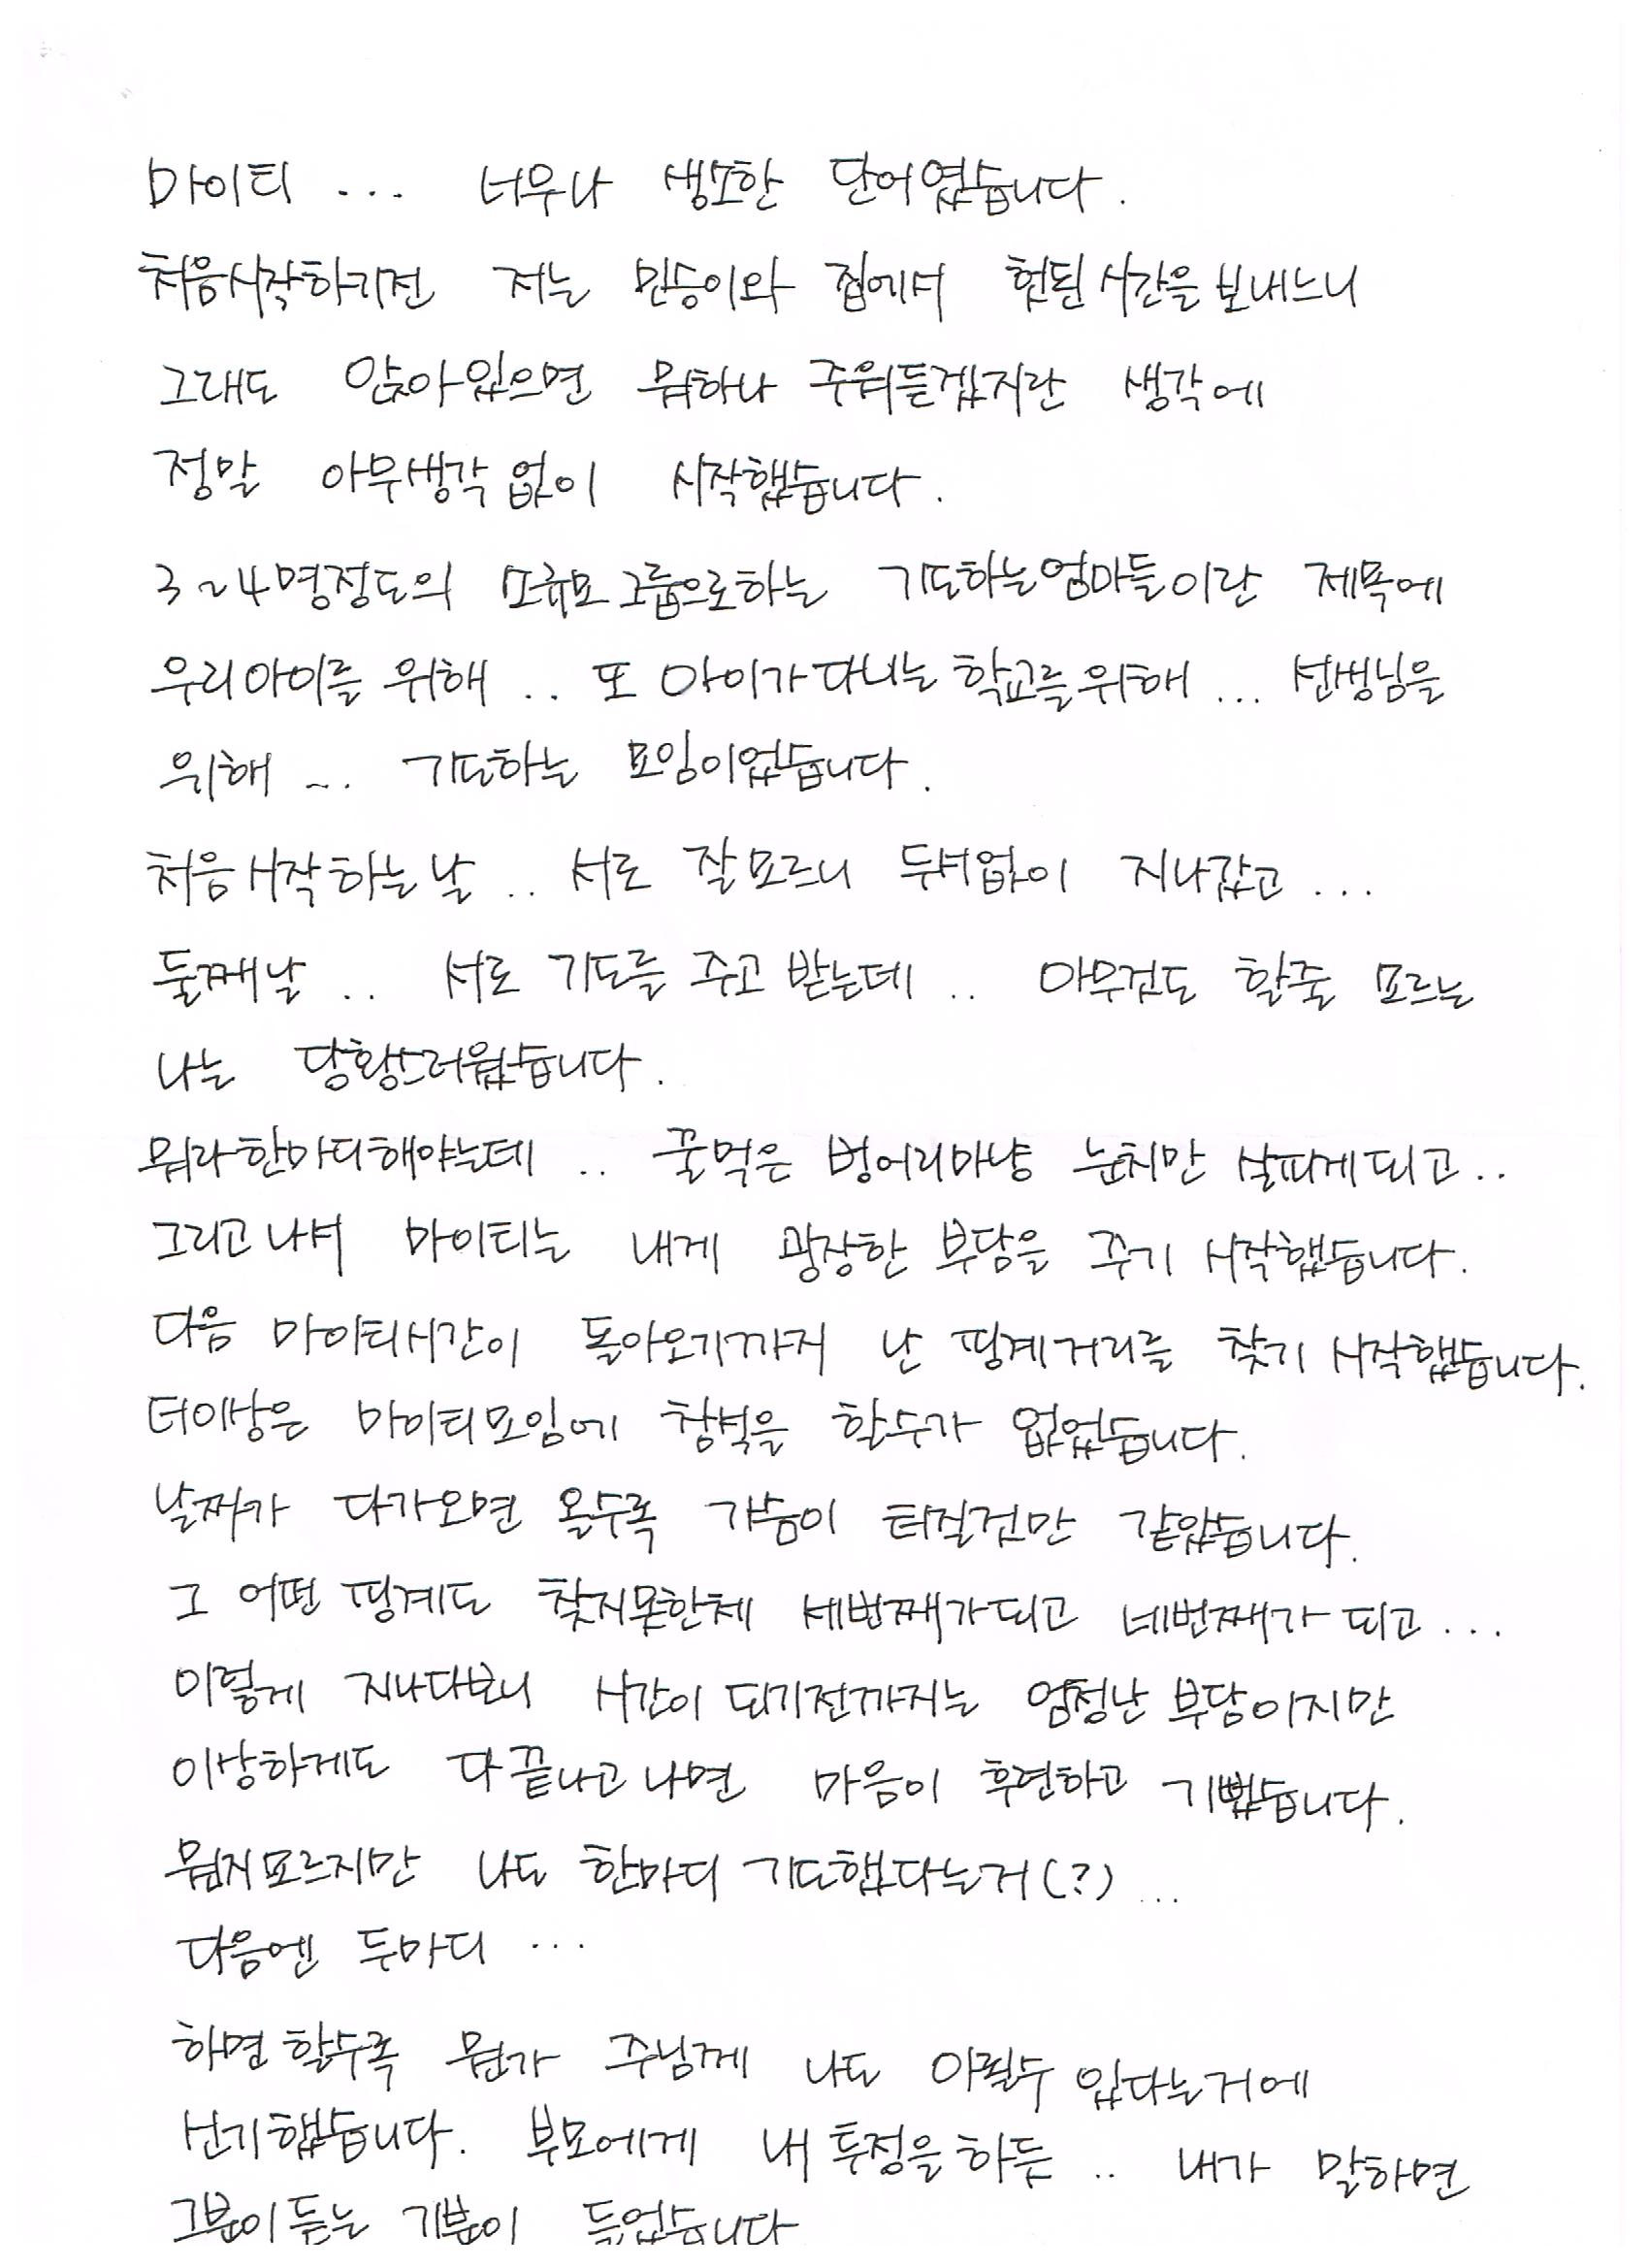 마이티 ... 너무나 생소한 단어였습니다.
처음시작하기전 저는 민승이와 집에서 헛된시간을보내느니
그래도 앉아있으면 뭐하나 주워듣겠지란 생각에
정말 아무생각없이 시작했습니다.
3~4명정도의 소규모그룹으로하는 기도하는엄마들이란 제목에
우리아이를 위해 .. 또 아이가다니는 학교를위해 ... 선생님을
위해 ... 기도하는 모임이었습니다.
처음시작하는날 .. 서로 잘모르니 두서없이 지나갔고 ...
둘째날 .. 서로 기도를 주고받는데 .. 아무것도 할줄 모르는
나는 당황스러웠습니다.
뭐라한마디해야는데 .. 꿀먹은 벙어리마냥 눈치만 살피게되고..
그리고나서 마이티는 내게 굉장한 부담을 주기 시작했습니다.
다음 마이티시간이 돌아오기까지 난 핑계거리를 찾기 시작했습니다.
더이상은 마이티모임에 참석을 할수가 없었습니다.
날짜가 다가오면 올수록 가슴이 터질것만 같았습니다.
그 어떤 핑계도 찾지못한체 세번째가되고 네번째가 되고 ...
이렇게 지나다보니 시간이 되기전까지는 엄청난 부담이지만
이상하게도 다끝나고나면 마음이 후련하고 기뻤습니다.
뭔지모르지만 나도 한마디 기도했다는거(?) ...
다음엔 두마디 ...
하면할수록 뭔가 주님께 나도 아뢸수 있다는거에
신기했습니다. 부모에게 내 투정을하듯 .. 내가 말하면
그분이듣는 기분이 들었습니다